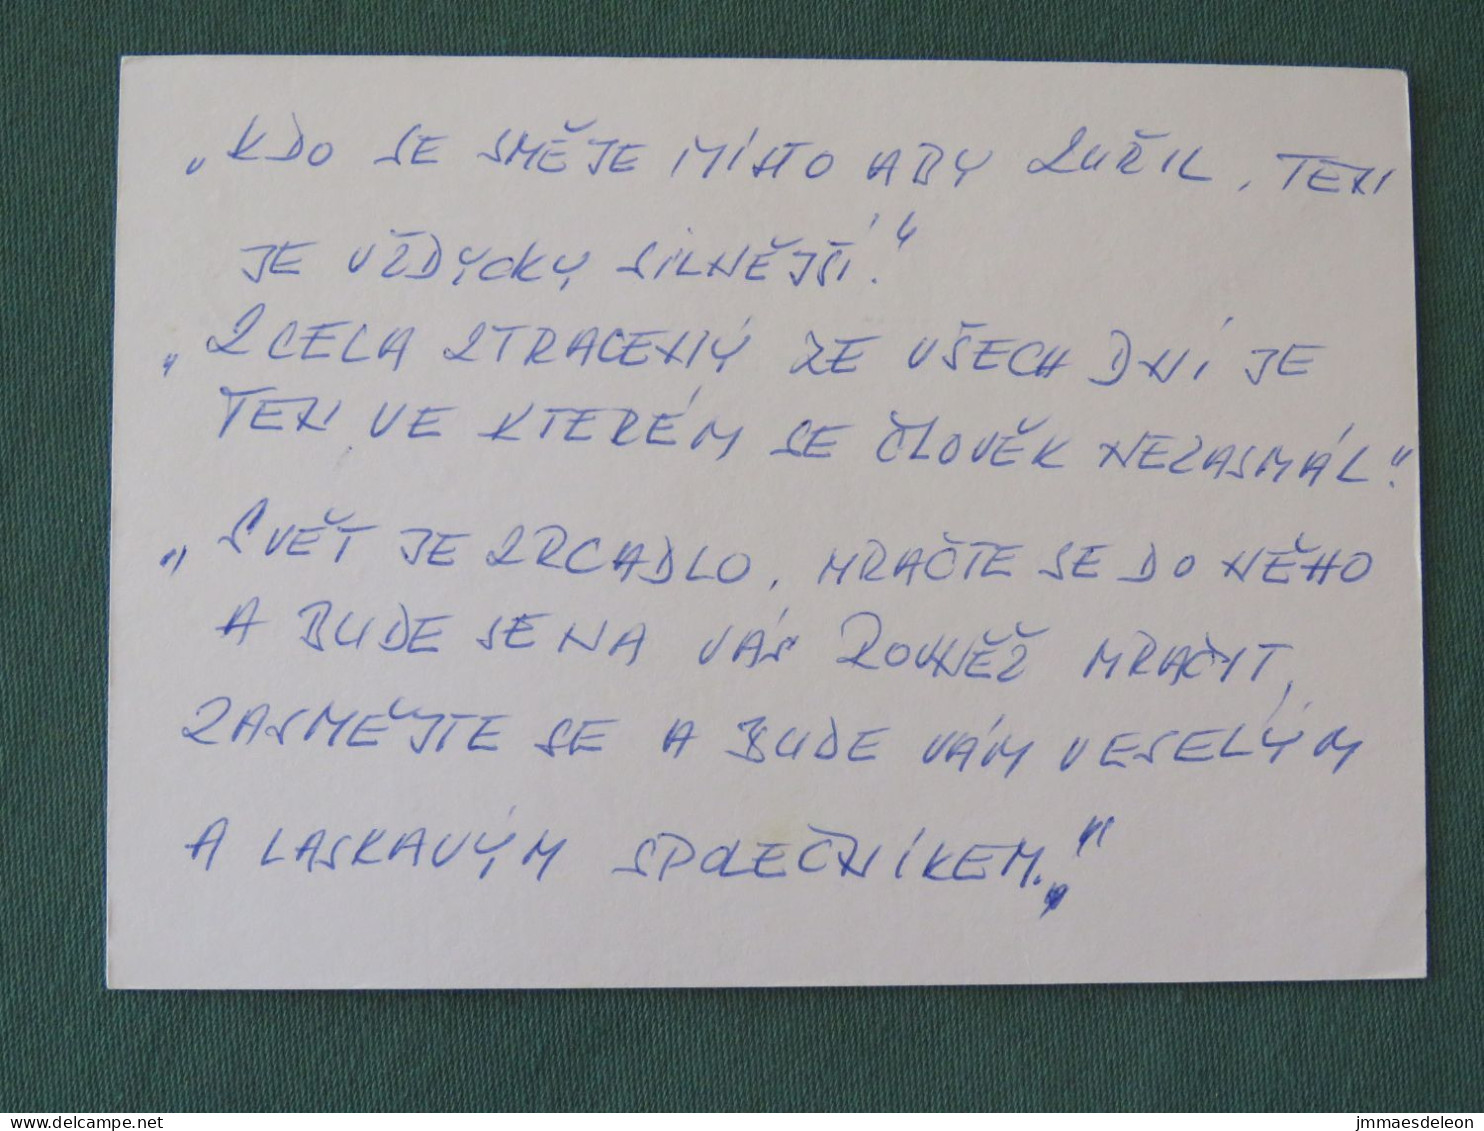 „KDO SE SMĚJE MÍSTO ABY ZUŘIL, TEN
JE VŽDYCKY SILNĚJŠÍ.“
„ZCELA ZTRACENÝ ZE VŠECH DNÍ JE
TEN, VE KTERÉM SE ČLOVĚK NEZASMÁL.“
„SVĚT JE ZRCADLO, MRAČTE SE DO NĚHO
A BUDE SE NA VÁS ROVNĚŽ MRAČIT,
ZASMĚJTE SE A BUDE VÁM VESELÝM
A LASKAVÝM SPOLEČNÍKEM.“
delcampe.net
jmmaesdeleon